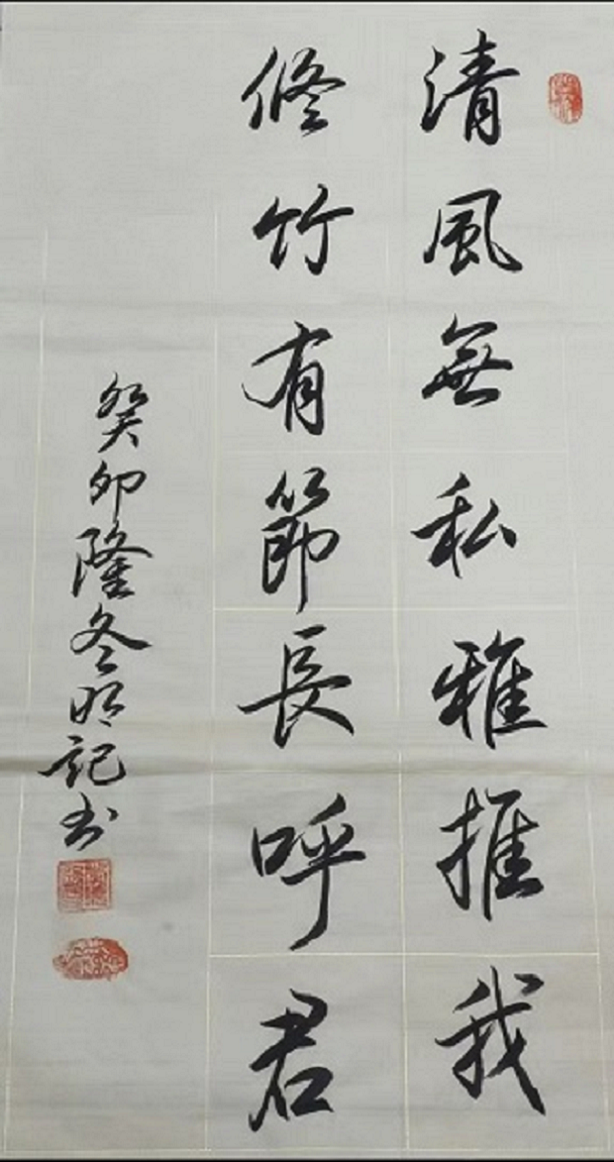 清風無私雅推我
修竹有節長呼君
癸卯隆冬明記书